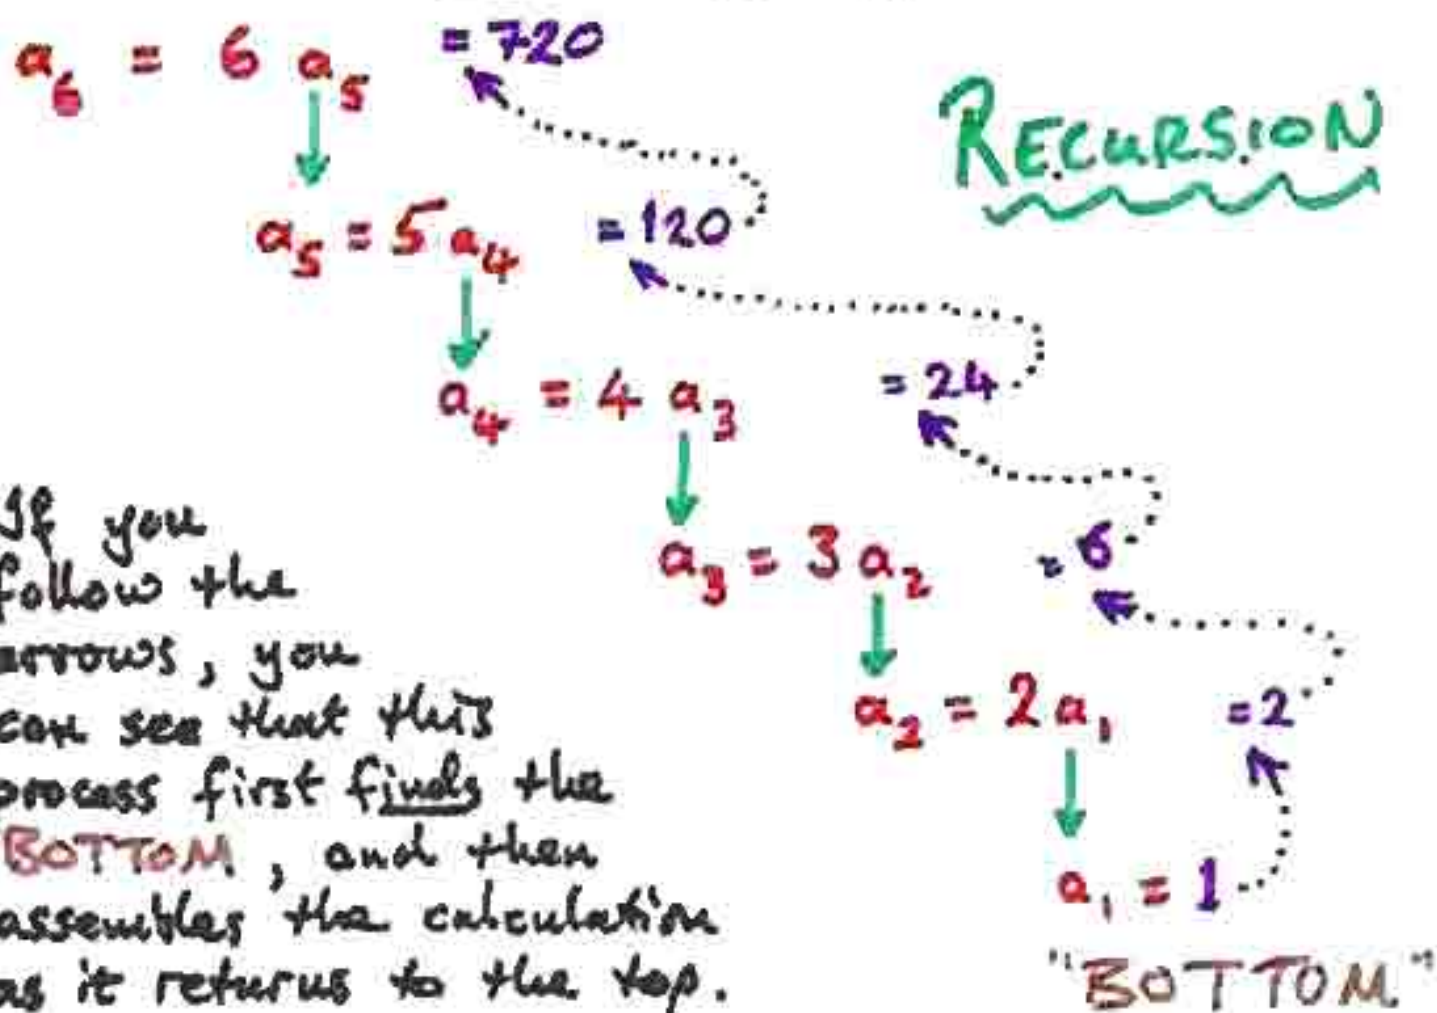 a₆ = 6 a₅ = 720
RECURSION
a₅ = 5 a₄ = 120
a₄ = 4 a₃ = 24
a₃ = 3 a₂ = 6
a₂ = 2 a₁ = 2
a₁ = 1
"BOTTOM"
If you
follow the
arrows, you
can see that this
process first finds the
BOTTOM, and then
assembles the calculation
as it returns to the top.